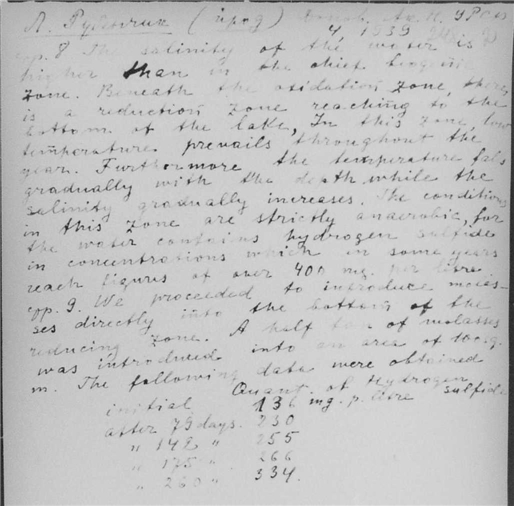 Л. Рубенчик (проф)
4, 1939
pp. 8 The salinity of the water is
higher than in the chief
zone. Beneath the oxidation zone, there
is a reduction zone reaching to the
bottom of the lake, In this zone low
temperature prevails throughout the
year. Furthermore the temperature falls
gradually with the depth while the
salinity gradually increases. The conditions
in this zone are strictly anaerobic, for
the water contains hydrogen sulfide
in concentrations which in some years
reach figures of over 400 mg. per litre
pp. 9. We proceeded to introduce molas-
ses directly into the bottom of the
reducing zone. A half ton of molasses
was introduced into an area of 10 sq.
m. The following data were obtained
Quant. of Hydrogen
initial 136 mg. p. litre sulfide
after 79 days. 230
" 149 " 255
" 175 " 266
" 220 " 334.